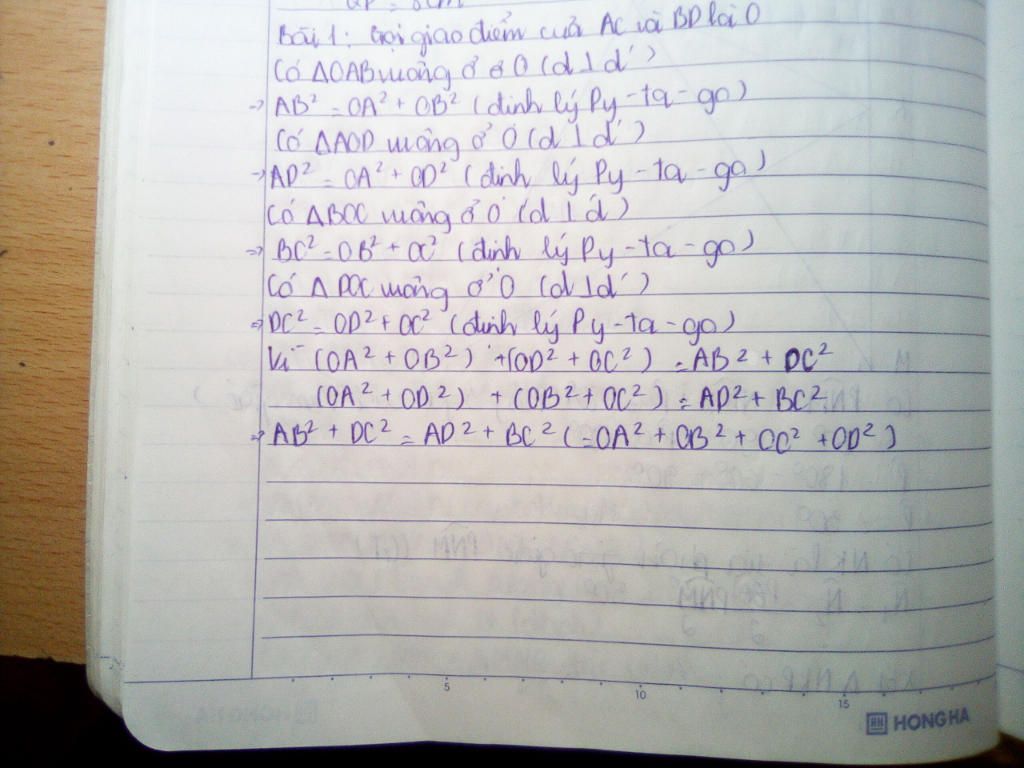 QP = 8cm
Bài 1: Gọi giao điểm của AC và BD là O
Có ΔOAB vuông ở O (d⊥d')
=> AB² = OA² + OB² (định lý Py-ta-go)
Có ΔAOD vuông ở O (d⊥d')
=> AD² = OA² + OD² (định lý Py-ta-go)
Có ΔBOC vuông ở O (d⊥d')
=> BC² = OB² + OC² (định lý Py-ta-go)
Có ΔDOC vuông ở O (d⊥d')
=> DC² = OD² + OC² (định lý Py-ta-go)
Vì (OA² + OB²) + (OD² + OC²) = AB² + DC²
(OA² + OD²) + (OB² + OC²) = AD² + BC²
=> AB² + DC² = AD² + BC² (= OA² + OB² + OC² + OD²)
5 10 15
HONG HA